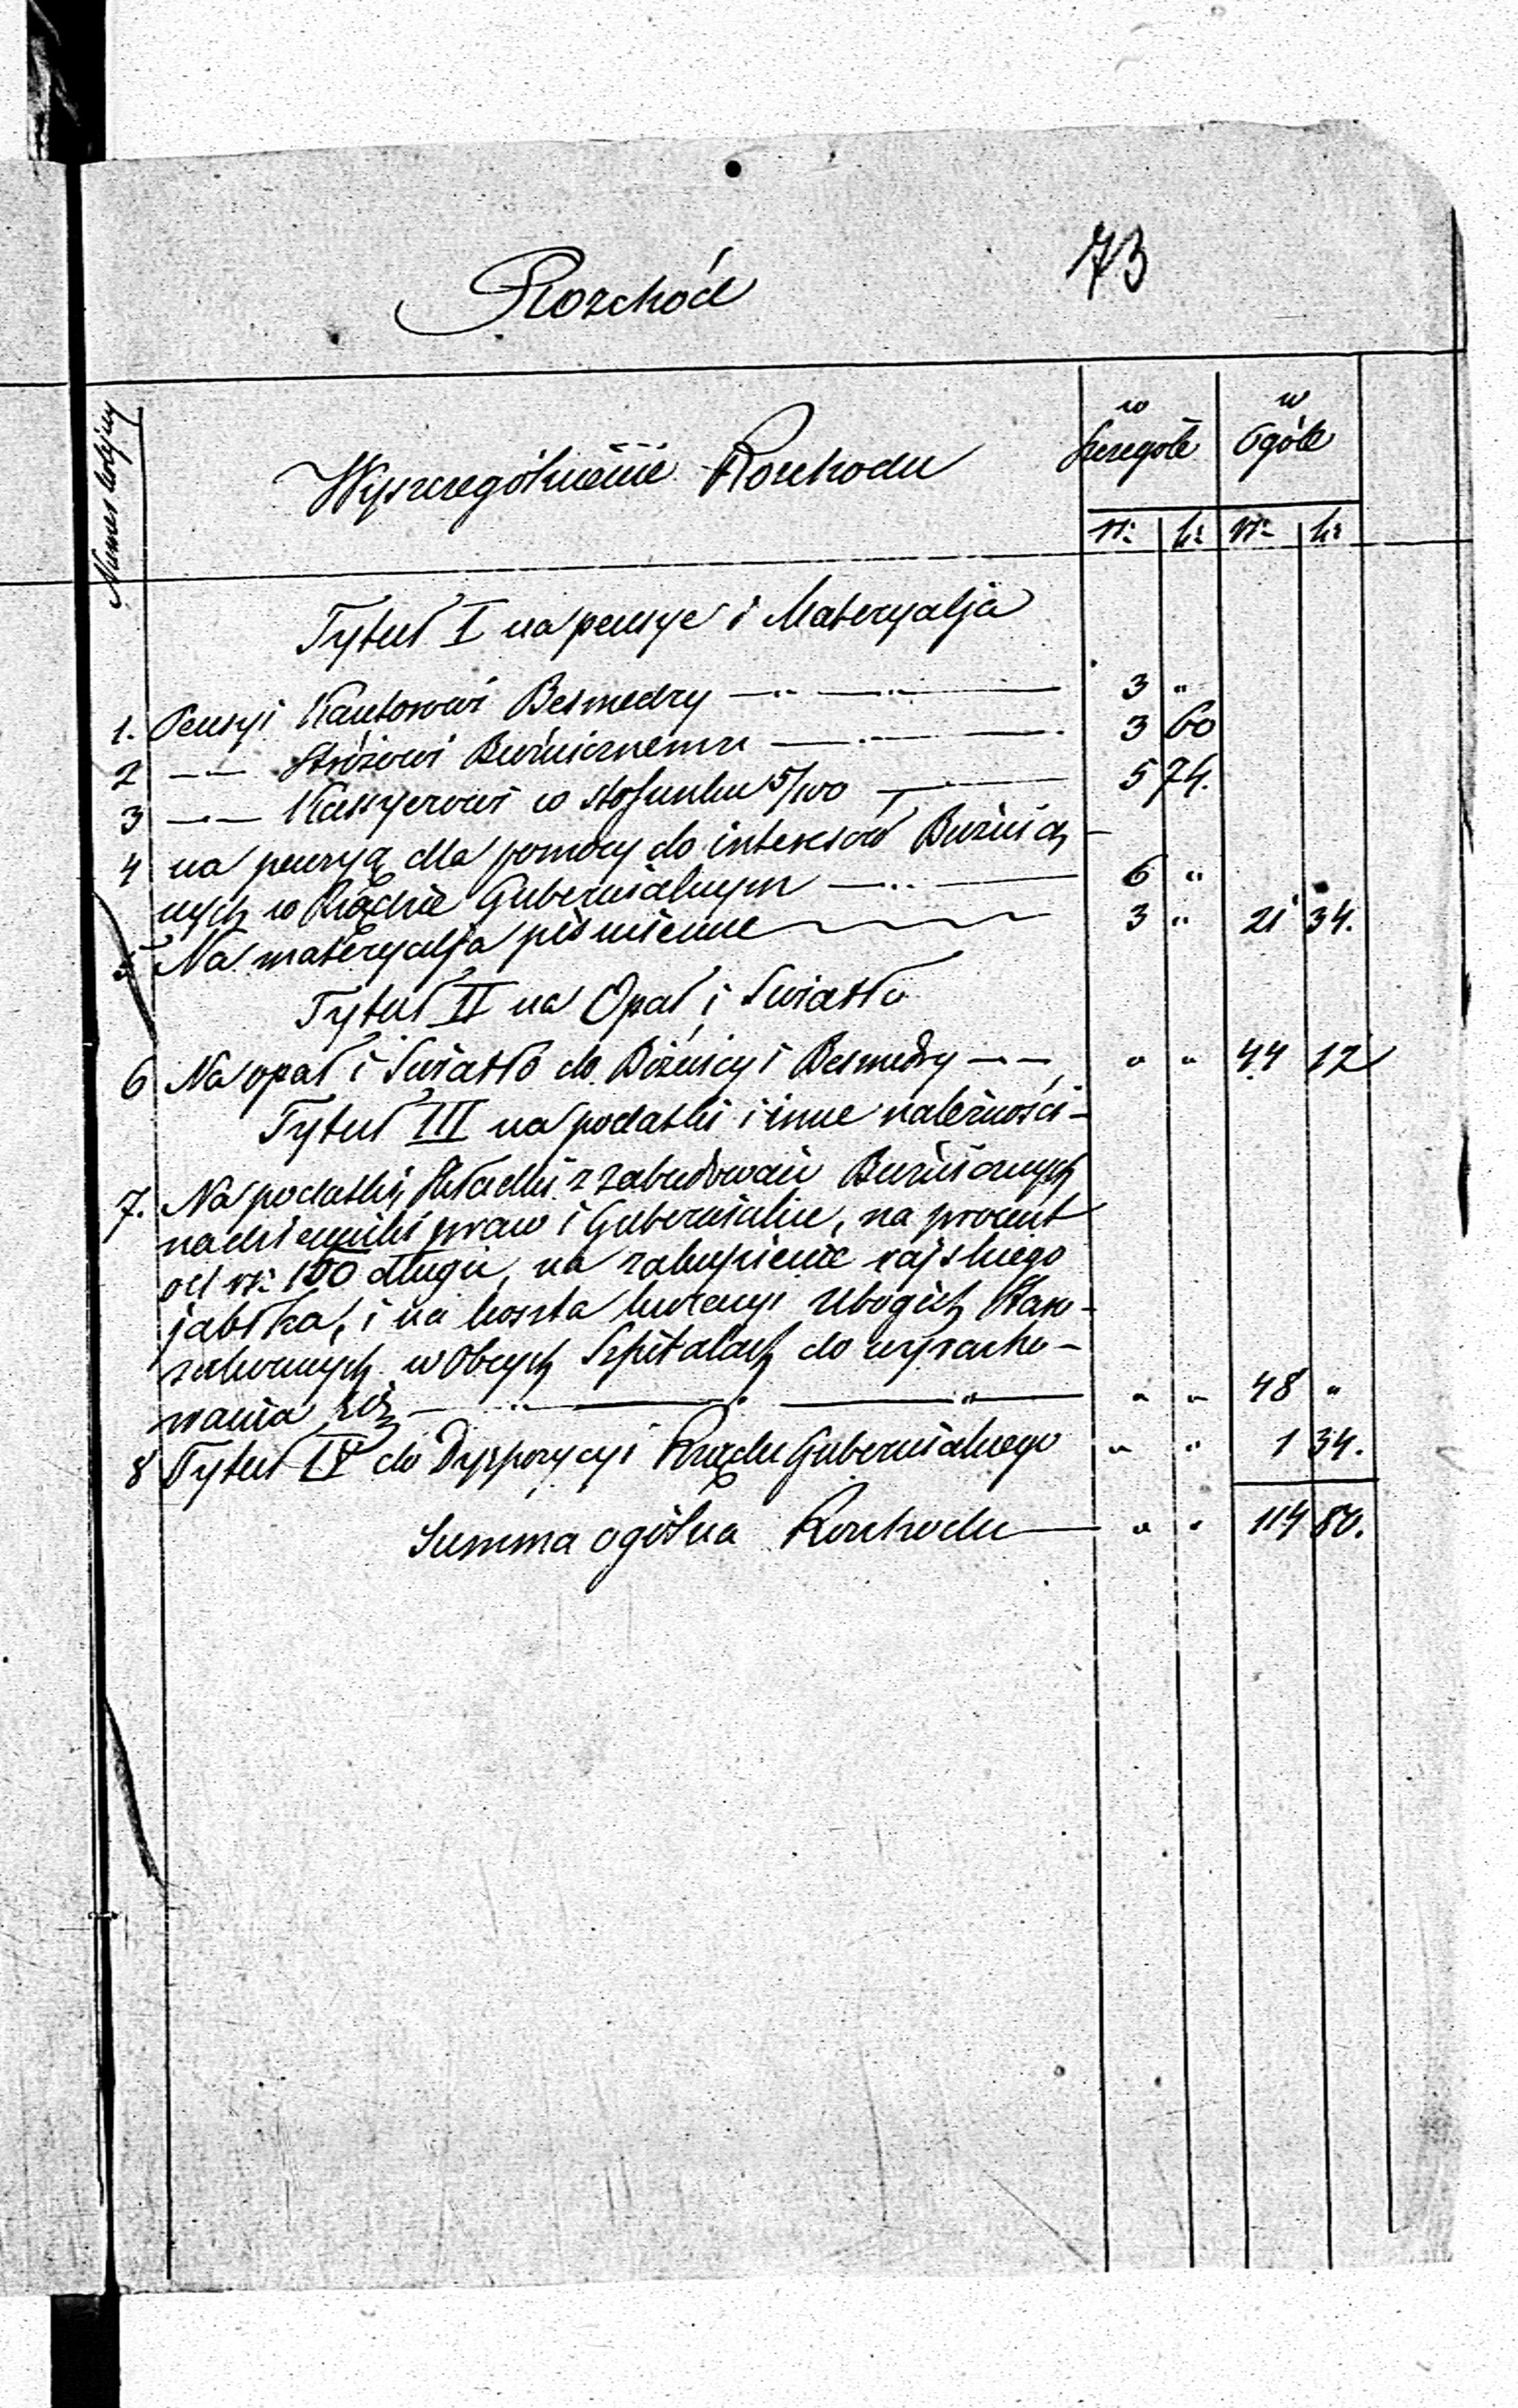 73
Rozchód
Numer kolejny
Wyszczególnienie Rozchodu
w Szczególe
w Ogóle
rs: k: rs: k:
Tytuł I na pensye i Materyalja
1. Pensyi Kantorowi Besmedry 3 "
2 Stróżowi Bużnicznemu 3 60
3 Kassyerowi w stosunku 5/100 5 74.
4 na pensyą dla pomocy do interesów Bużnicz-
nych w Rządzie Gubernialnym 6 "
5 Na materyalja piśmienne 3 " 21 34.
Tytuł II na Opał i Światło
6 Na opał i Światło do Bóżnicy i Besmedry " " 44 12
Tytuł III na podatki i inne należności
7. Na podatki, składki z zabudowań Bużnicznych
na dzienniki praw i Gubernialne, na procent
od rs: 150 długu, na zakupienie rajskiego
jabłka, i na koszta kuracyi Ubogich
w Obcych Szpitalach do wyracho-
wania się " " 48 "
8 Tytuł IV do Dyspozycyi Rządu Gubernialnego " " 1 34.
Summa ogólna Rozchodu " " 114 80.